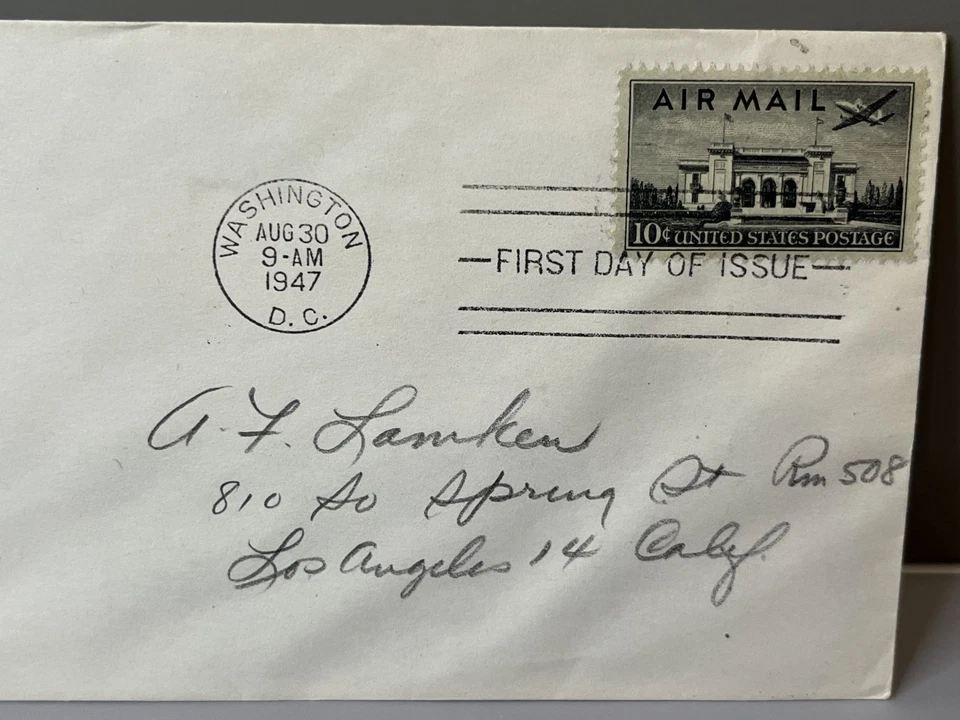 AIR MAIL
10¢ UNITED STATES POSTAGE
WASHINGTON
AUG 30
9-AM
1947
D. C.
FIRST DAY OF ISSUE
A. F. Lamken
810 So Spring St Rm 508
Los Angeles 14 Calif.